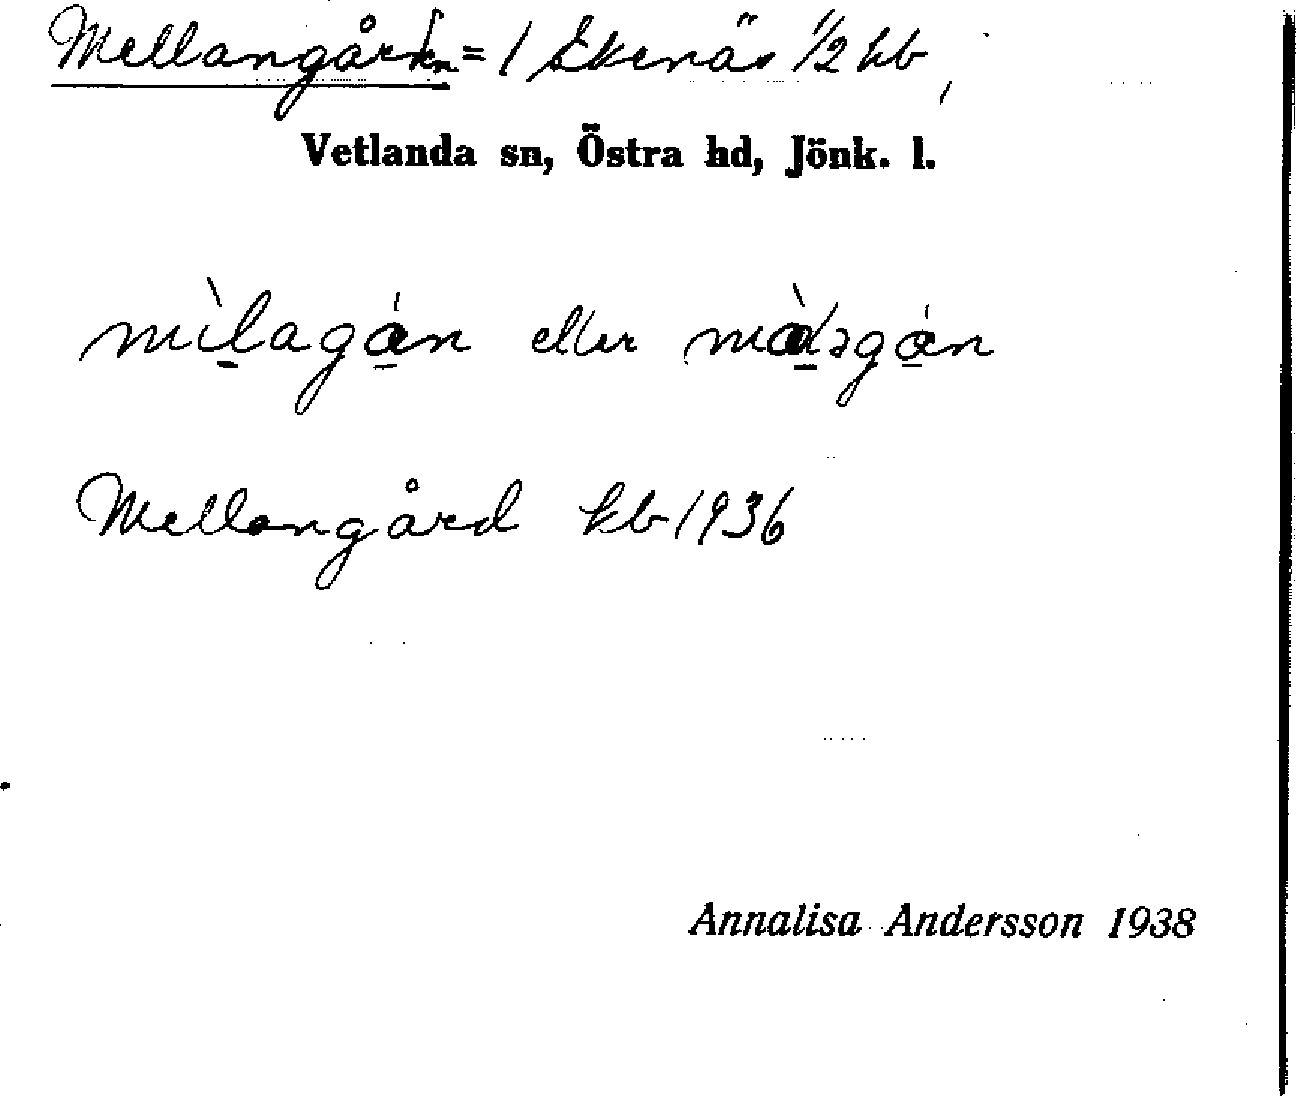 Mellangården = 1 Ekenäs 1/2 hb,
Vetlanda sn, Östra hd, Jönk. l.
mìlagán eller màləgán
Mellangård kb 1936
Annalisa Andersson 1938